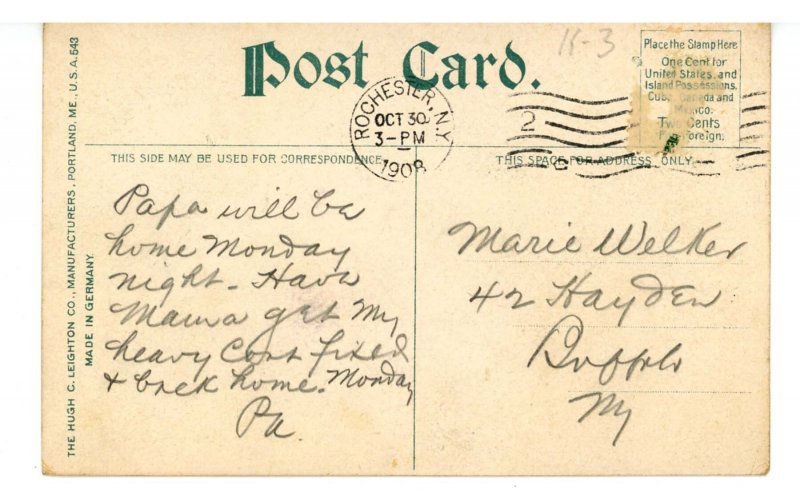 K-3
Post Card.
Place the Stamp Here
One Cent for
United States, and
Island Possessions,
Cuba, Canada and
Mexico;
Two Cents
For Foreign;
ROCHESTER, N.Y.
OCT 30
3-PM
1908
2
C
THIS SIDE MAY BE USED FOR CORRESPONDENCE
THIS SPACE FOR ADDRESS ONLY.
THE HUGH C. LEIGHTON CO., MANUFACTURERS, PORTLAND, ME., U.S.A. 543
MADE IN GERMANY.
Papa will be
home Monday
night - Have
Mama get My
heavy Coat fixed
& back home. Monday
Pa.
Marie Welker
42 Hayden
Buffalo
Ny